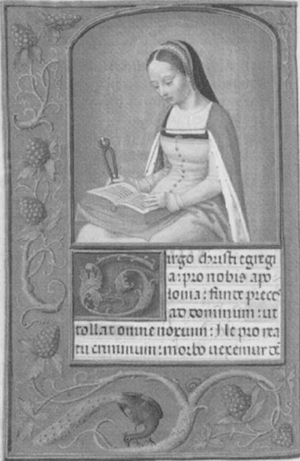 Virgo christi egregi
a: pro nobis apo
lonia: funde preces
ad dominum: ut
tollat omne noxium: Ne pro rea
tu criminum: morbo vexemur de